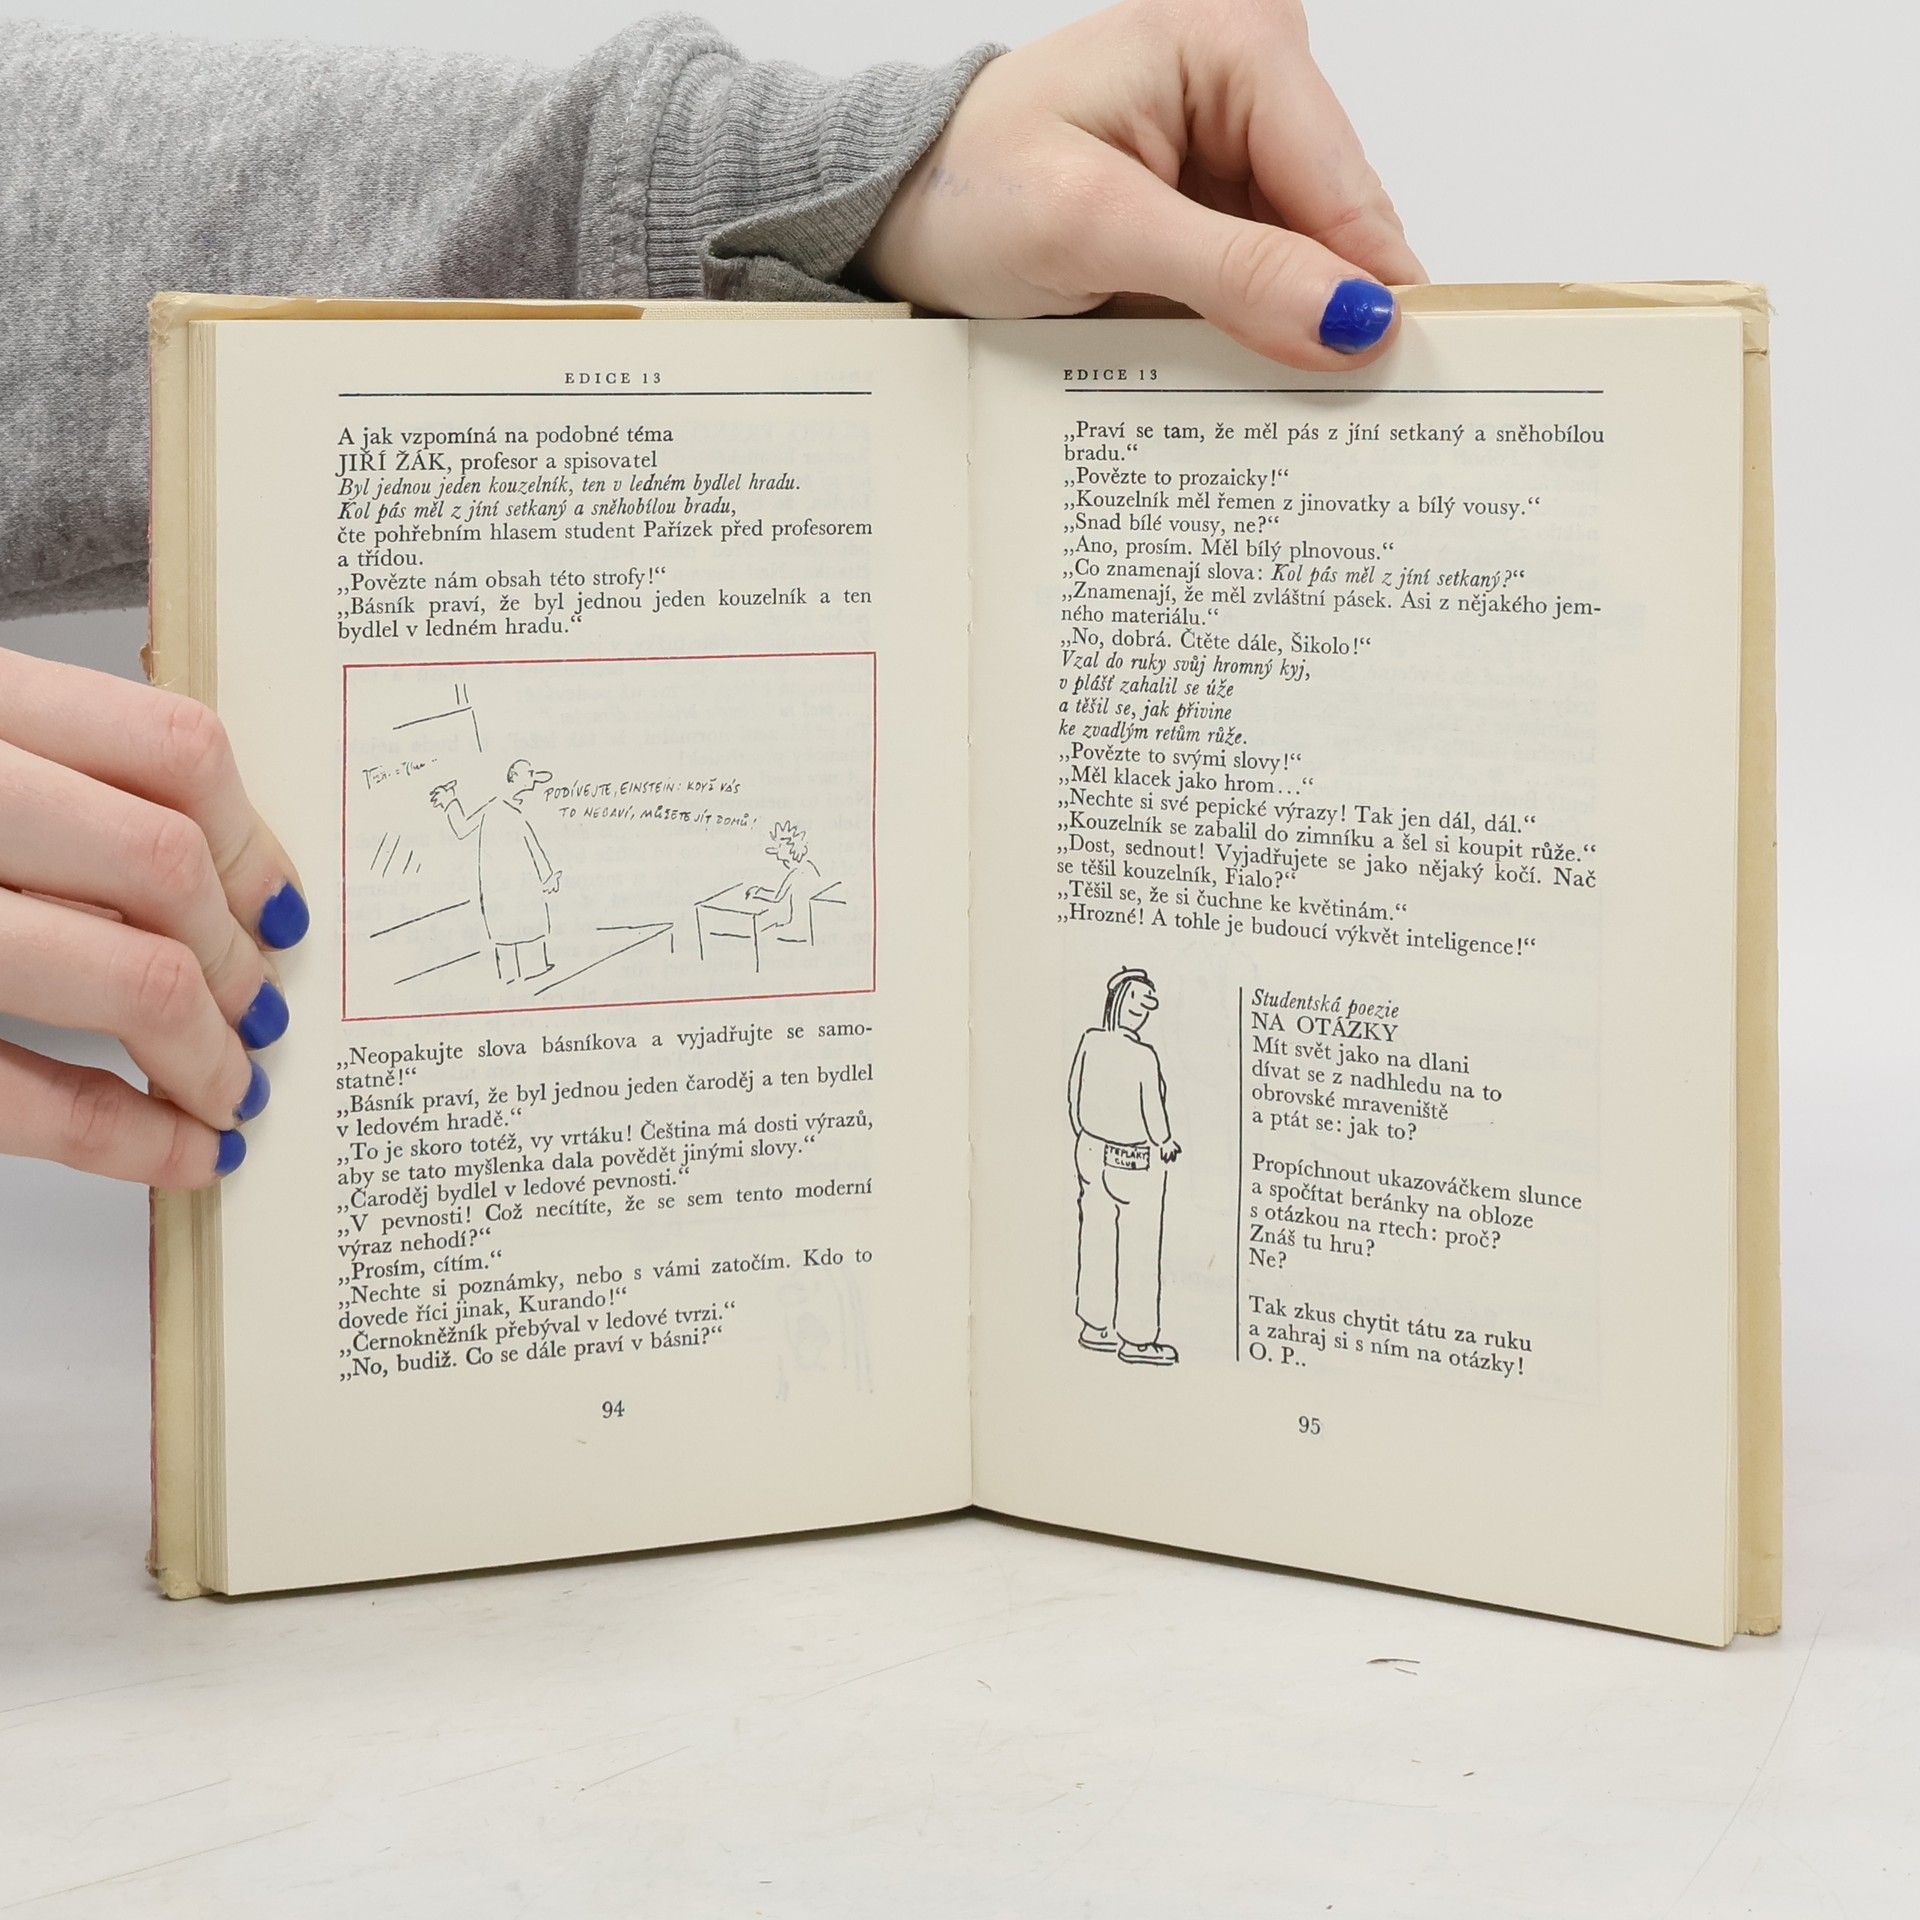 EDICE 13
A jak vzpomíná na podobné téma
JIŘÍ ŽÁK, profesor a spisovatel
Byl jednou jeden kouzelník, ten v ledném bydlel hradu.
Kol pás měl z jíní setkaný a sněhobílou bradu,
čte pohřebním hlasem student Pařízek před profesorem
a třídou.
„Povězte nám obsah této strofy!“
„Básník praví, že byl jednou jeden kouzelník a ten
bydlel v ledném hradu.“
PODÍVEJTE, EINSTEIN: KDYŽ VÁS
TO NEBAVÍ, MŮŽETE JÍT DOMŮ!
„Neopakujte slova básníkova a vyjadřujte se samo-
statně!“
„Básník praví, že byl jednou jeden čaroděj a ten bydlel
v ledovém hradě.“
„To je skoro totéž, vy vrtáku! Čeština má dosti výrazů,
aby se tato myšlenka dala povědět jinými slovy.“
„Čaroděj bydlel v ledové pevnosti.“
„V pevnosti! Což necítíte, že se sem tento moderní
výraz nehodí?“
„Prosím, cítím.“
„Nechte si poznámky, nebo s vámi zatočím. Kdo to
dovede říci jinak, Kurando!“
„Černokněžník přebýval v ledové tvrzi.“
„No, budiž. Co se dále praví v básni?“
94
EDICE 13
„Praví se tam, že měl pás z jíní setkaný a sněhobílou
bradu.“
„Povězte to prozaicky!“
„Kouzelník měl řemen z jinovatky a bílý vousy.“
„Snad bílé vousy, ne?“
„Ano, prosím. Měl bílý plnovous.“
„Co znamenají slova: Kol pás měl z jíní setkaný?“
„Znamenají, že měl zvláštní pásek. Asi z nějakého jem-
ného materiálu.“
„No, dobrá. Čtěte dále, Šikolo!“
Vzal do ruky svůj hromný kyj,
v plášť zahalil se úže
a těšil se, jak přivine
ke zvadlým retům růže.
„Povězte to svými slovy!“
„Měl klacek jako hrom...“
„Nechte si své pepické výrazy! Tak jen dál, dál.“
„Kouzelník se zabalil do zimníku a šel si koupit růže.“
„Dost, sednout! Vyjadřujete se jako nějaký kočí. Nač
se těšil kouzelník, Fialo?“
„Těšil se, že si čuchne ke květinám.“
„Hrozné! A tohle je budoucí výkvět inteligence!“
TEPLÁKY
CLUB
Studentská poezie
NA OTÁZKY
Mít svět jako na dlani
dívat se z nadhledu na to
obrovské mraveniště
a ptát se: jak to?
Propíchnout ukazováčkem slunce
a spočítat beránky na obloze
s otázkou na rtech: proč?
Znáš tu hru?
Ne?
Tak zkus chytit tátu za ruku
a zahraj si s ním na otázky!
O. P..
95